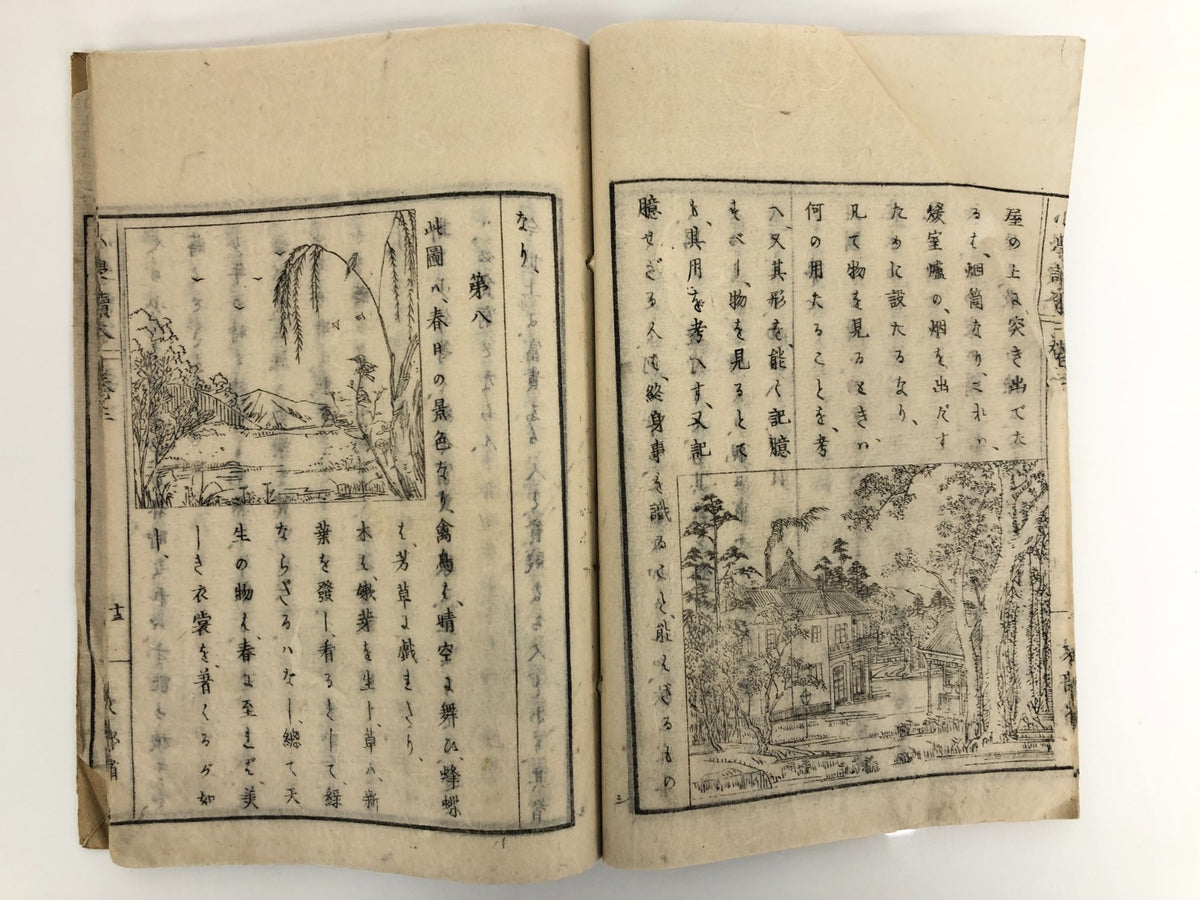 屋の上に突き出でた
るは、烟筒なり、これハ、
煖室爐の、烟を出だす
ために設たるなり、
凡て物を見るときハ、
何の用たることを、考
へ、又其形を、能く記臆
すべし、物を見ると雖
も、其用を考へず、又記
臆せざる人は、終身事を識ること、能はざるもの
なり
第八
此圖ハ、春日の景色なり、禽鳥は、晴空に舞ひ、蜂蝶
は、芳草に戯れをり、
木は、嫩芽を生し、草ハ、新
葉を發し、看るとして、緑
ならざるハなし、總て、天
生の物は、春に至れば、美
しき衣裳を、著くるが如
小學讀本
十三
文部省